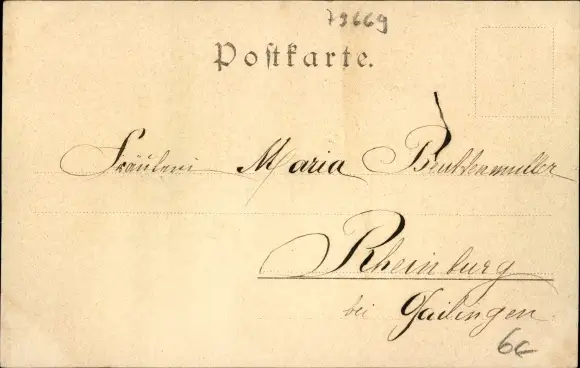 79669
Postkarte.
Fräulein Maria Beuttenmuller
Rheinburg
bei Gailingen.
6c